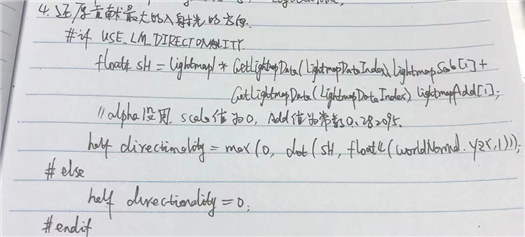 4. 还原贡献最大的入射光的方向.
#if USE_LM_DIRECTIONALITY
float4 SH = Lightmap * GetLightmapData(LightmapDataIndex).LightmapScale[1] +
GetLightmapData(LightmapDataIndex).LightmapAdd[1];
//alpha没用, scale值为0, Add值为常数0.282095.
half directionality = max(0, dot(SH, float4(worldNormal.yzx,1)));
#else
half directionality = 0;
#endif